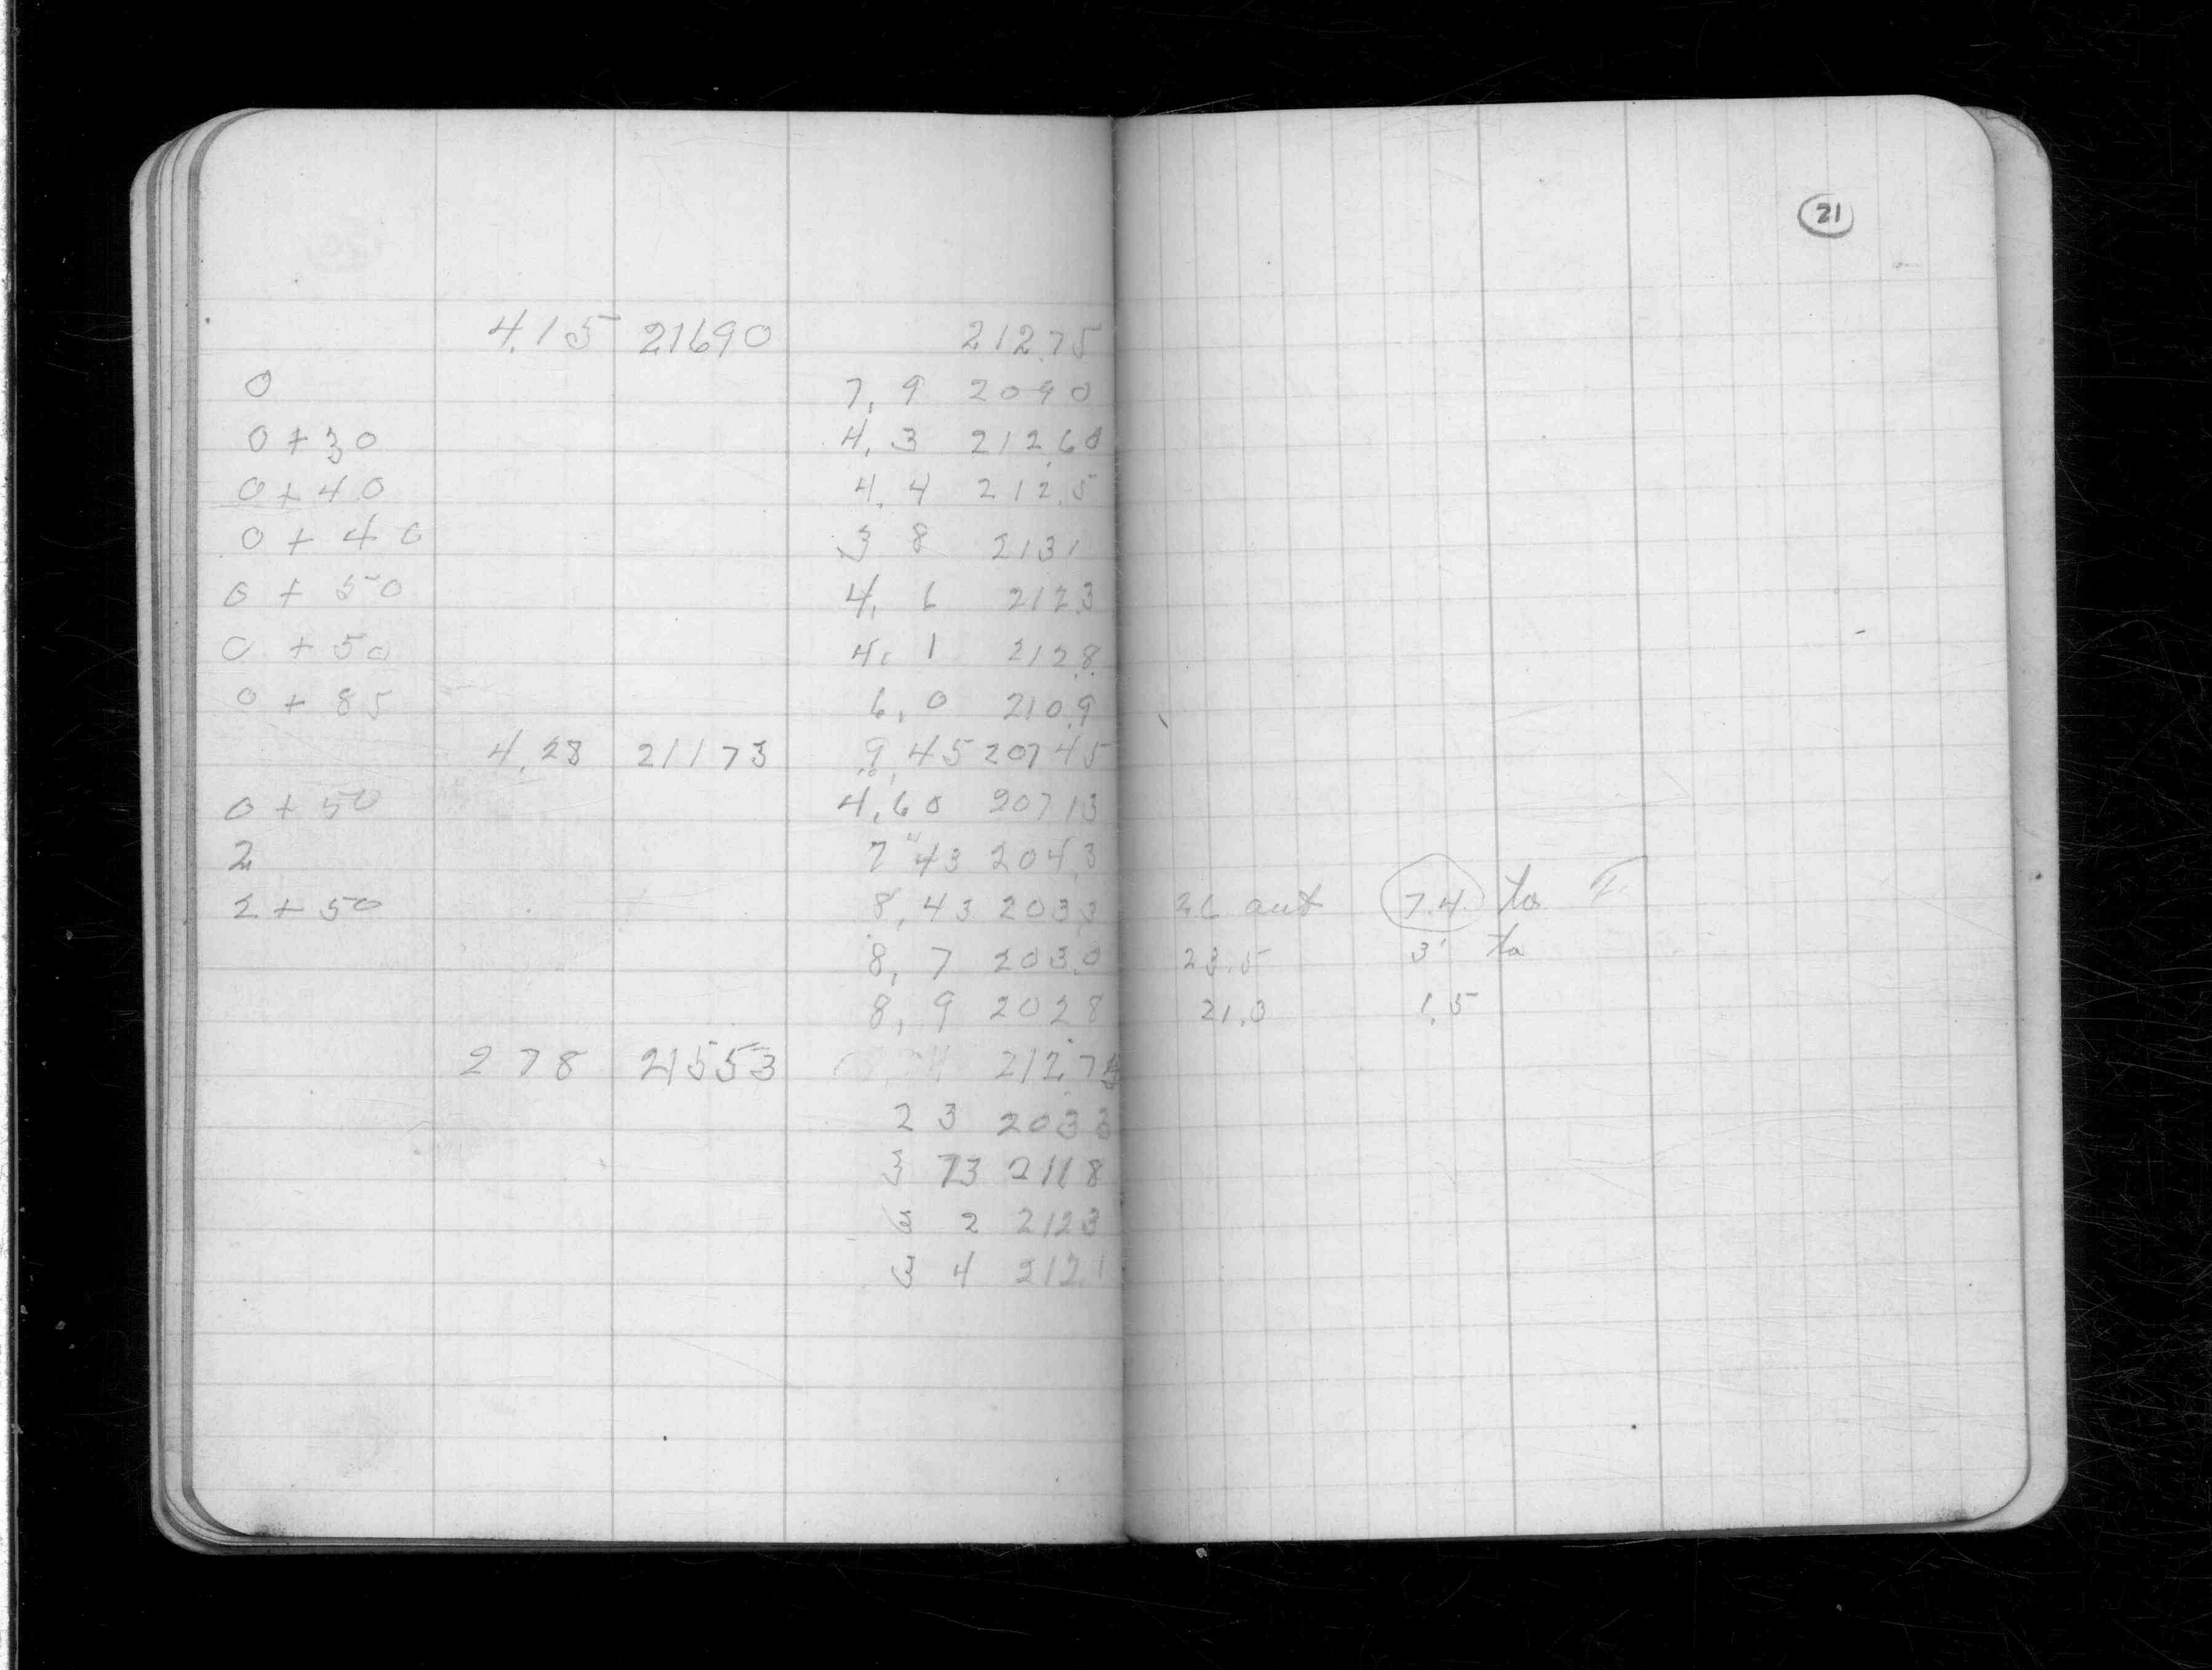 21
4.15 21690 212.75
0 7.9 2090
0+30 4.3 212.60
0+40 4.4 212.5
0+40 3 8 2131
0+50 4.6 2123
0+50 4.1 2128
0+85 6.0 210.9
4.28 21173 9.45 20745
0+50 4.60 20713
2 7 43 204.3
2+50 8.43 2033 26 out 7.4 to
8.7 203.0 23.5 3' to
8.9 2028 21.3 1.5
2 78 21553 212.75
2 3 2033
3 73 2118
3 2 2123
3 4 212.1